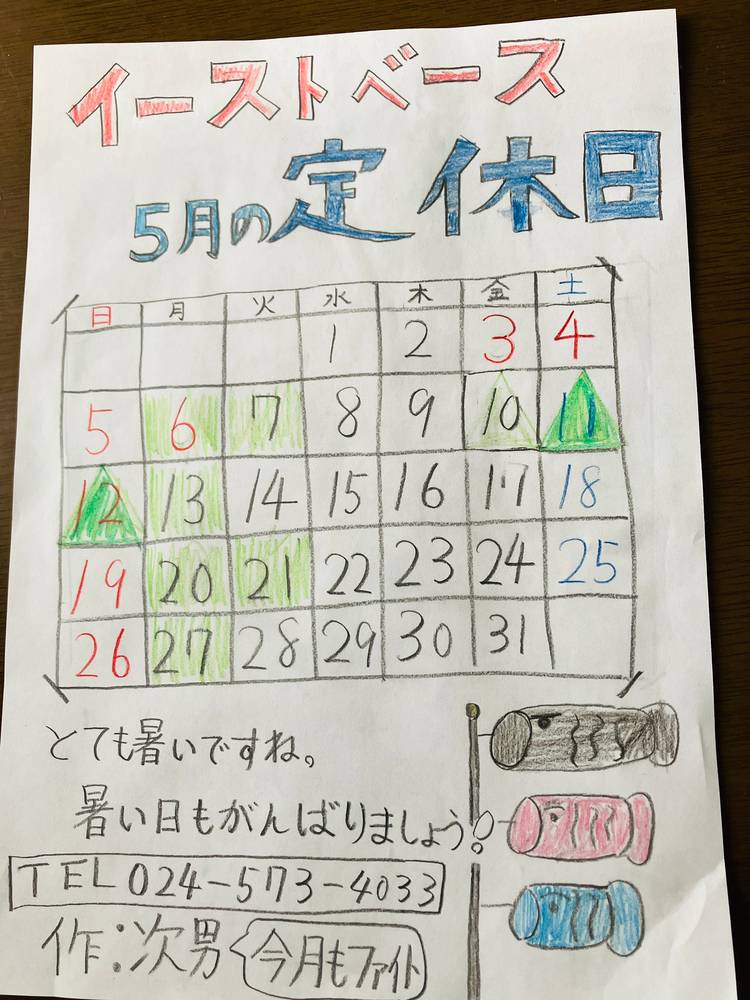 イーストベース
5月の定休日
日 月 火 水 木 金 土
1 2 3 4
5 6 7 8 9 10 11
12 13 14 15 16 17 18
19 20 21 22 23 24 25
26 27 28 29 30 31
とても暑いですね。
暑い日もがんばりましょう!
TEL 024-573-4033
作:次男 今月もファイト